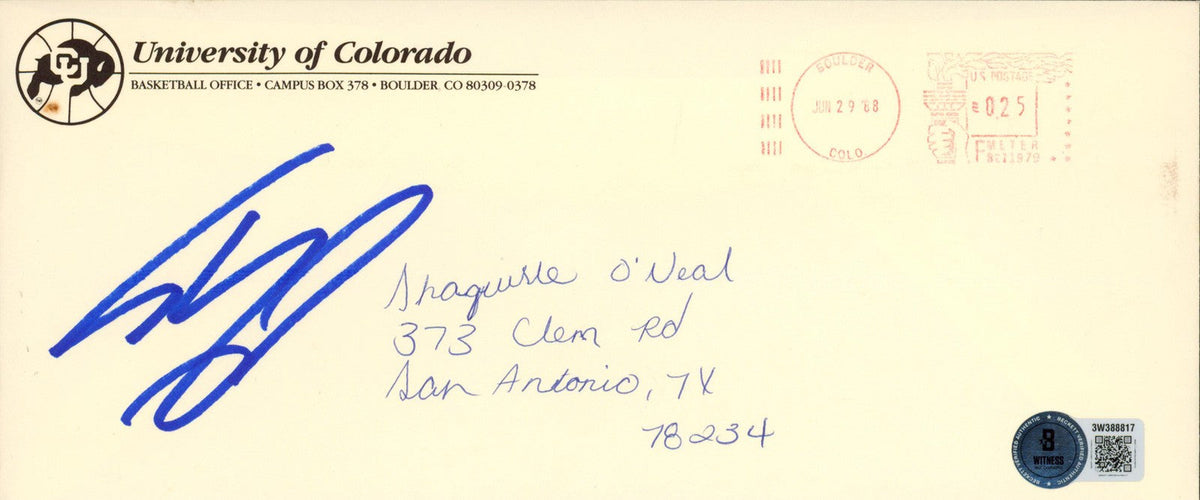 CU
University of Colorado
BASKETBALL OFFICE • CAMPUS BOX 378 • BOULDER, CO 80309-0378
BOULDER
JUN 29 '88
COLO
U.S. POSTAGE
0.25
METER
Shaquille O'Neal
373 Clem Rd
San Antonio, TX
78234
3W388817
BECKETT VERIFIED AUTHENTIC
B
WITNESS